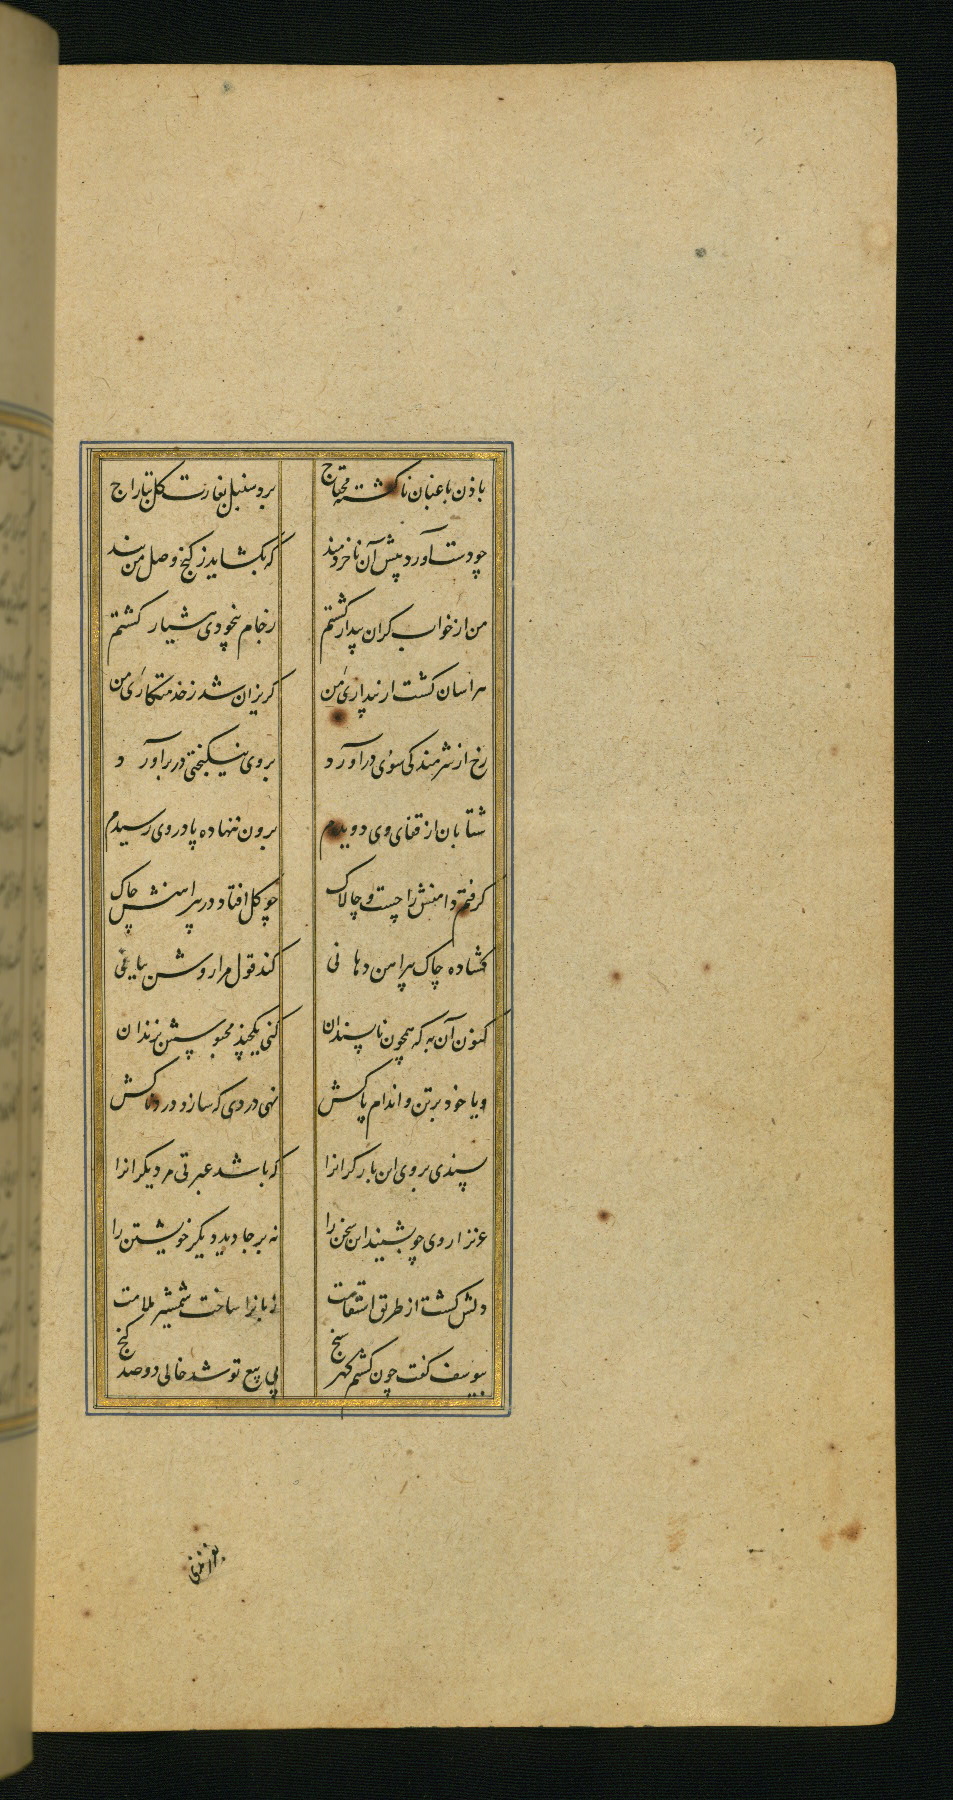 باذن باغبان ناکشته محتاج
برد سنبل بغارت کل بتاراج
چو دست آورد پیش آن ناخردمند
که بکشاید ز کنج وصل من بند
من از خواب کران بیدار کشتم
ز جام بیخودی هشیار کشتم
هراسان کشت از بیداری من
کریزان شد ز خدمتکاری من
رخ از شرمندکی سوی در آورد
بروی نیکبختی در برآورد
شتابان از قفای وی دویدم
برون ننهاده پا در وی رسیدم
کرفتم دامنش را چست و چالاک
چو کل افتاد در پیراهنش چاک
کشاده چاک پیراهن دهانی
کند قول مرا روشن بیانی
کنون آن به که همچون ناپسندان
کنی یکچند محبوسش بزندان
و یا خود بر تن و اندام پاکش
نهی دردی که سازد دردناکش
پسندی بر وی این بار کرانرا
که باشد عبرتی مر دیکرانرا
عزیز از وی چو بشنید این سخن را
نه بر جا دید دیکر خویشتن را
دلش کشت از طریق استقامت
زبانرا ساخت شمشیر ملامت
بیوسف کفت چون کشتم کهر سنج
پی بیع تو شد خالی دو صد کنج